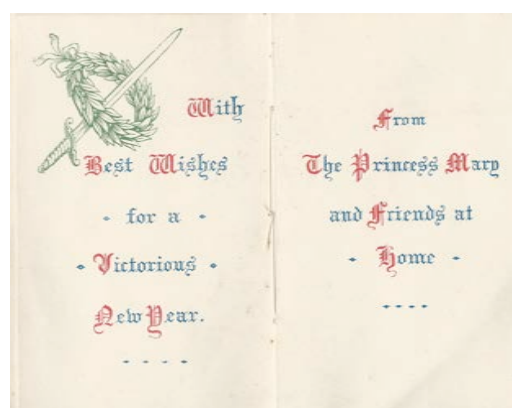 With
Best Wishes
· for a ·
· Victorious ·
New Year.
From
The Princess Mary
and Friends at
· Home ·